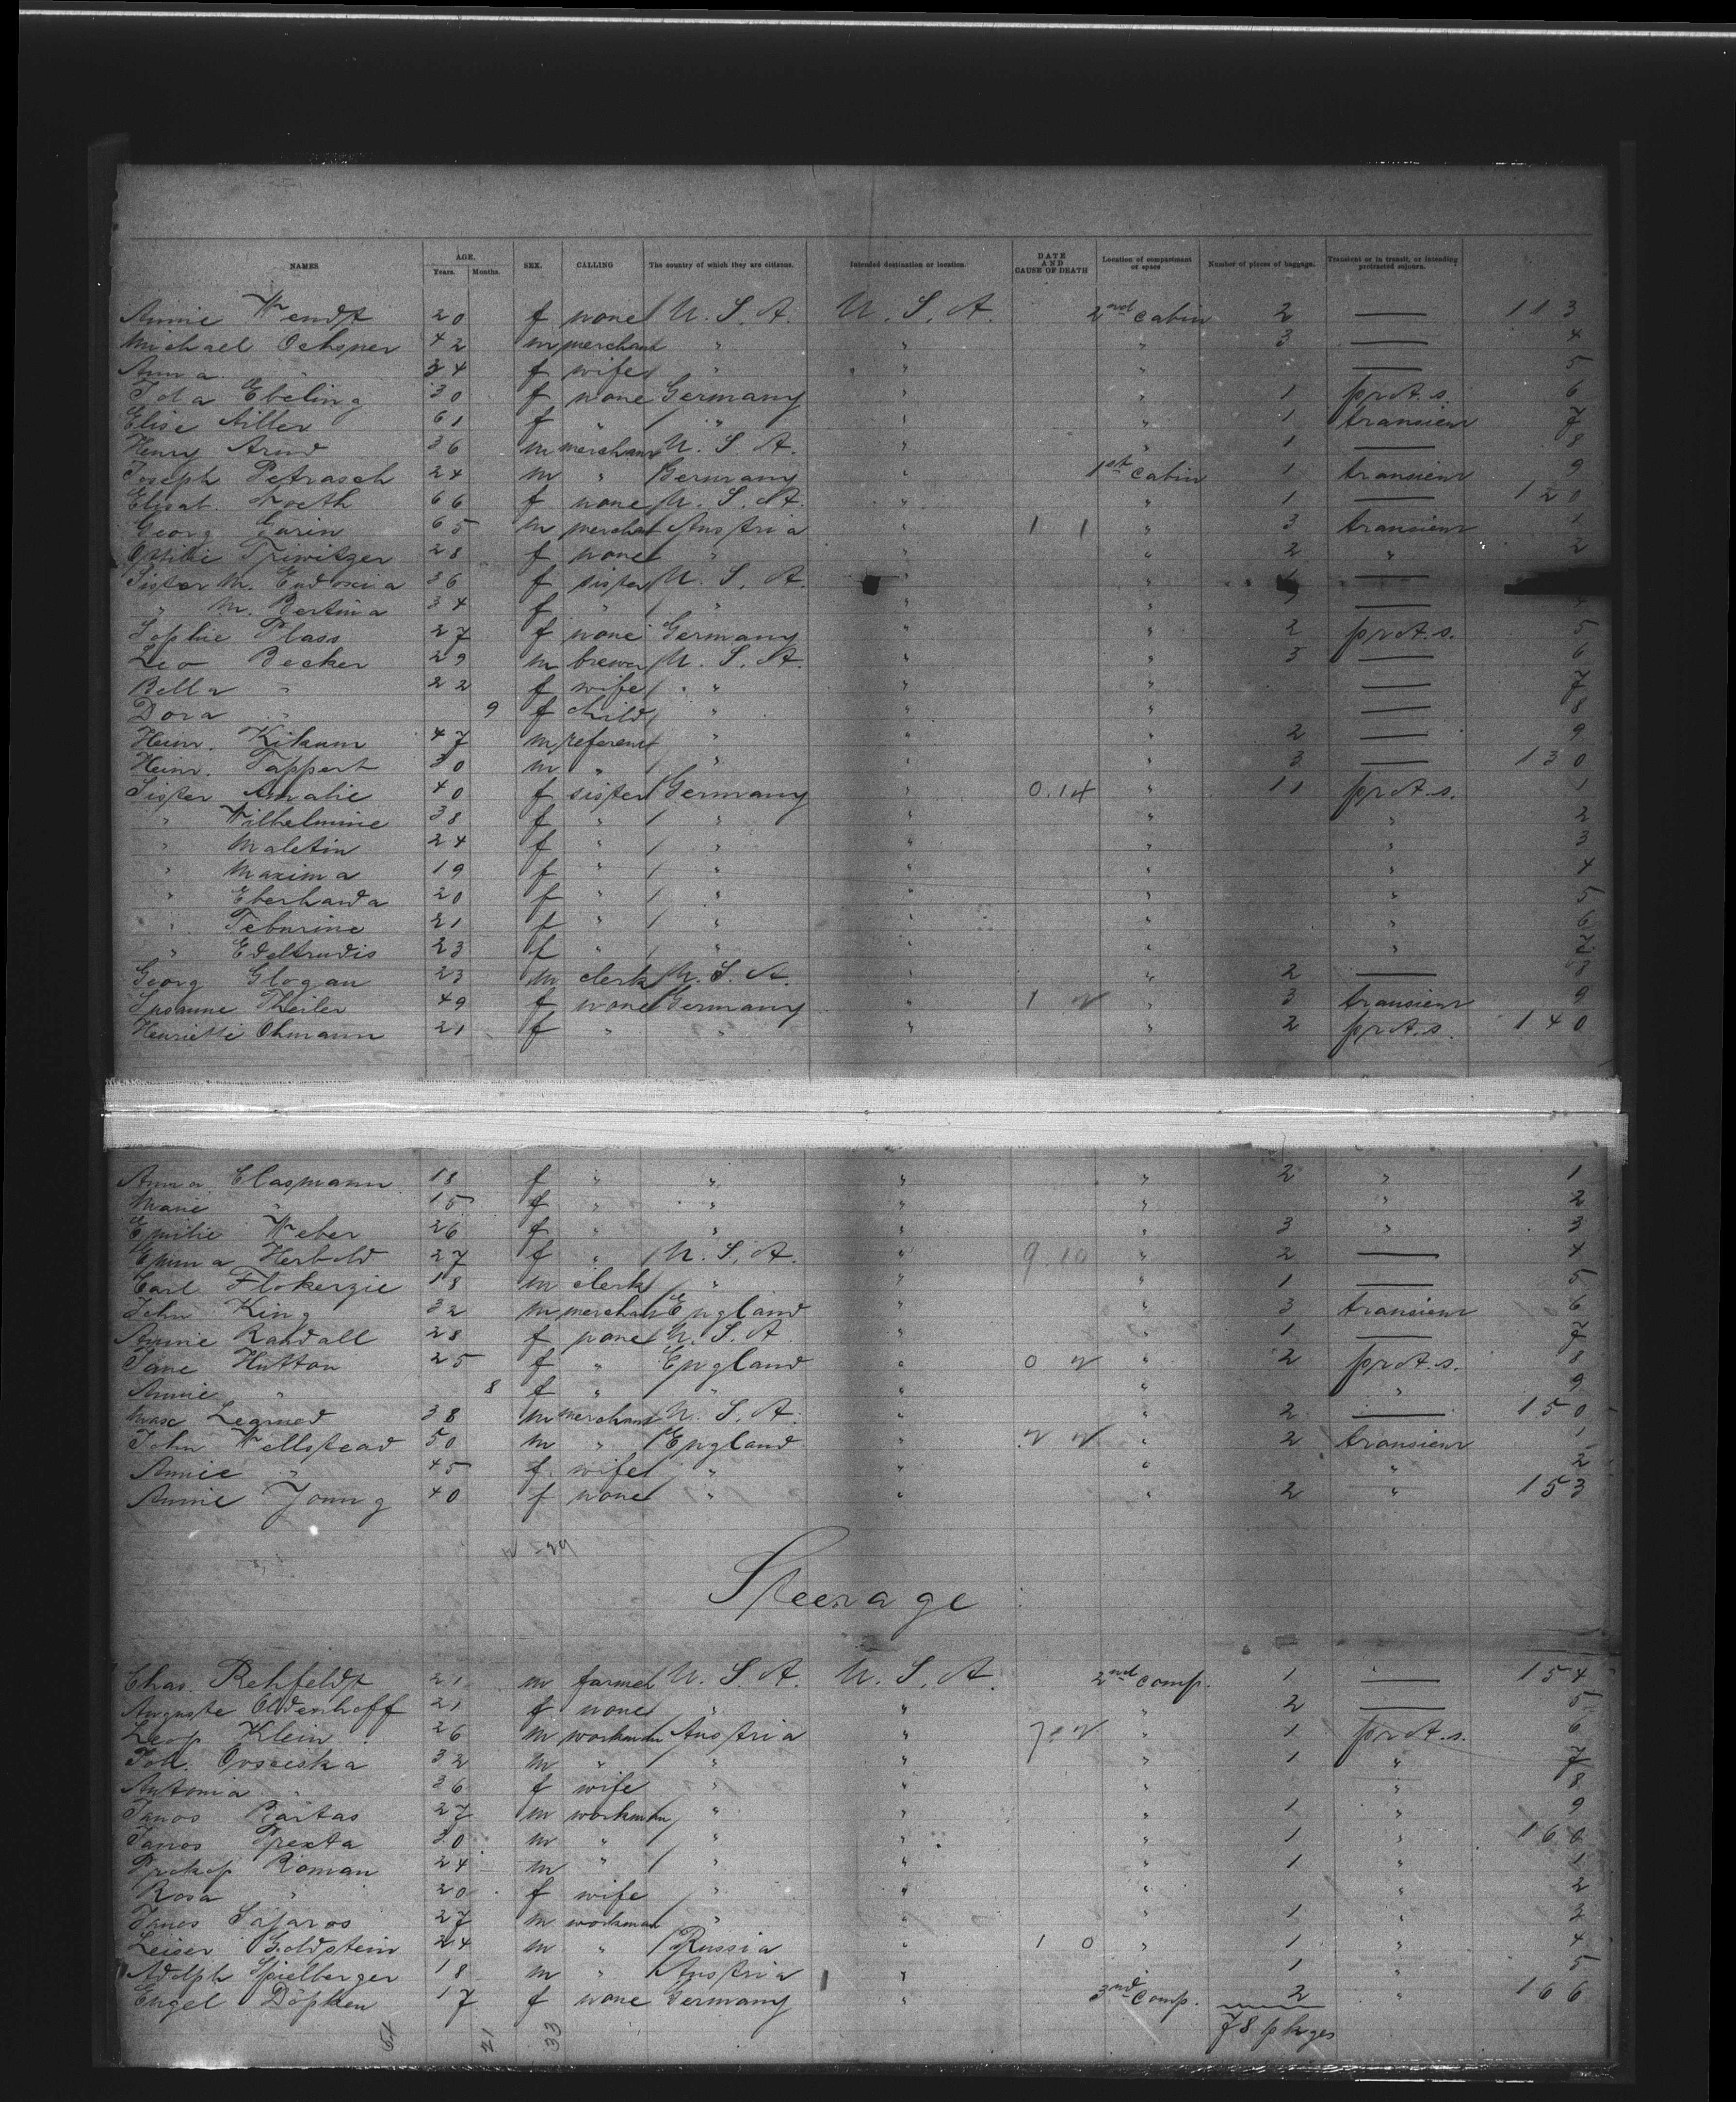 NAMES AGE. Years. Months. SEX. CALLING The country of which they are citizens. Intended destination or location. DATE AND CAUSE OF DEATH Location of compartment or space Number of pieces of baggage. Transient or in transit, or intending protracted sojourn.
Annie Wendt 20 f none U. S. A. U. S. A. 2nd cabin 2 — 113
Michael Ochsner 42 m merchant " " " 3 — 4
Anna " 34 f wife " " " — 5
Ida Ebeling 30 f none Germany " " 1 prot. s. 6
Elise Hiller 61 f " " " " 1 transient 7
Henry Arnd 36 m merchant U. S. A. " " 1 — 8
Joseph Petrasch 24 m " Germany " 1st cabin 1 transient 9
Elisab. Noeth 66 f none U. S. A. " " 1 — 120
Georg Garin 65 m merchant Austria " 1 1 " 3 transient 1
Ottilie 28 f none " " " 2 " 2
Sister M. Eudoxia 36 f sister U. S. A. " " 1 —
" M. Bertina 34 f " " " " 1 — 4
Sophie Plass 27 f none Germany " " 2 prot. s. 5
Leo Becker 29 m brewer U. S. A. " " 3 — 6
Bella " 22 f wife " " " — 7
Dora " 9 f child " " " — 8
Heinr. Kikum 47 m referent " " " 2 — 9
Heinr. Tappert 30 m " " " " 3 — 130
Sister Amalie 40 f sister Germany " 0.14 " 11 prot. s. 1
" Wilhelmine 38 f " " " " " 2
" Maletin 24 f " " " " " 3
" Maxima 19 f " " " " " 4
" Eberharda 20 f " " " " " 5
" Teburine 21 f " " " " " 6
" Edeltrudis 23 f " " " " " 7
Georg Glogau 23 m clerk U. S. A. " " 2 — 8
Susanne Theiler 49 f none Germany " 1 2 " 3 transient 9
Henriette Ohmann 21 f " " " " 2 prot. s. 140
Anna Clasmann 18 f " " " " 2 " 1
Marie " 15 f " " " " " 2
Emilie Weber 26 f " " " " 3 " 3
Emma Herbold 27 f " U. S. A. " 9 10 " 2 — 4
Carl Flokerzie 18 m clerk " " " 1 — 5
John King 32 m merchant England " " 3 transient 6
Annie Randall 28 f none U. S. A. " " 1 — 7
Jane Hutton 25 f " England " 0 2 " 2 prot. s. 8
Annie " 8 f " " " " " 9
Max Learned 38 m merchant U. S. A. " " 2 — 150
John Wellstead 50 m " England " 2 2 " 2 transient 1
Annie " 45 f wife " " " " 2
Annie Young 40 f none " " " 2 " 153
Steerage
Chas. Rehfeldt 21 m farmer U. S. A. U. S. A. 2nd comp. 1 — 154
Auguste Oldenhoff 21 f none " " " 2 — 5
Leop Klein 26 m workman Austria " 7 2 " 1 prot. s. 6
Joh. Ovsceska 32 m " " " " 1 " 7
Antonia " 36 f wife " " " " 8
Janos Bartas 27 m workman " " " 1 " 9
Janos Prexta 30 m " " " " 1 " 160
Prokop Roman 24 m " " " " 1 " 1
Rosa " 20 f wife " " " " 2
Janos Safaros 27 m workman " " " 1 " 3
Leiser Goldstein 24 m " Russia " 1 0 " 1 " 4
Adolph Spielberger 18 m " Austria " " 1 " 5
Engel Döpken 17 f none Germany " 3nd comp. 2 " 166
78 pkges
21 33